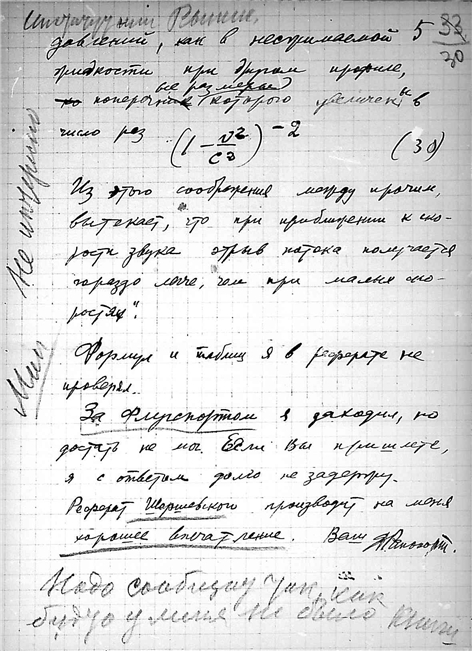 давлений, как в несжимаемой 5 33
жидкости при другом профиле, 30
поперечные размеры которого увеличены в
число раз (1 - v²/c²)⁻² (30)
Из этого соображения между прочим,
вытекает, что при приближении к ско-
рости звука отрыв потока получается
гораздо легче, чем при малых ско-
ростях".
Не
Формул и таблиц я в реферате не
проверял.
За Флугспортом я заходил, но
достать не мог. Если Вы пришлете,
я с ответом долго не задержу.
Реферат производит на меня
хорошее впечатление. Ваш
Надо сообщить так, как
будто у меня не было книги